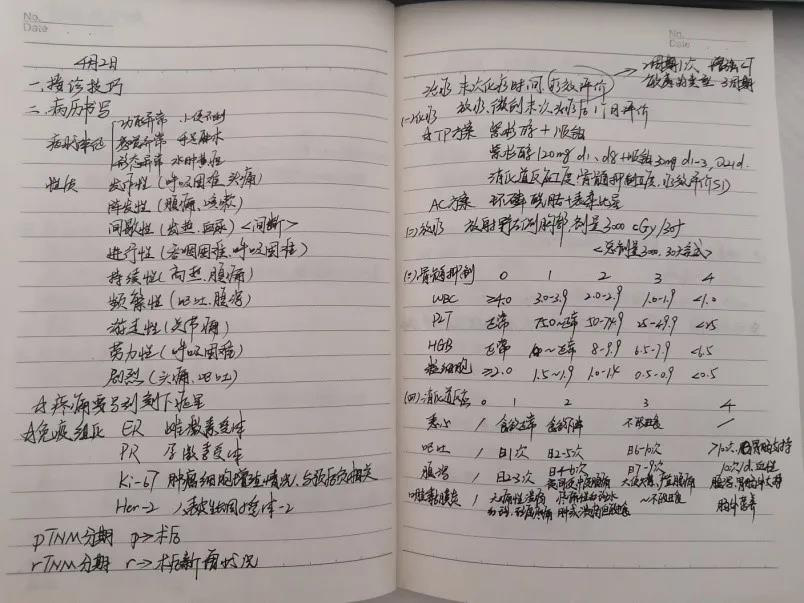 No.
Date
4月2日
一.接诊技巧
二.病历书写
功能异常 小便不利
感觉异常 手足麻木
形态异常 水肿黄疸
性质 发作性(呼吸困难、头痛)
阵发性(腹痛、咳嗽)
间歇性(发热、血尿)<间断>
进行性(吞咽困难、呼吸困难)
持续性(高热、腹痛)
频繁性(呕吐、腹泻)
游走性(关节痛)
劳力性(呼吸困难)
剧烈(头痛、呕吐)
疼痛
免疫组化 ER 雌激素受体
PR 孕激素受体
Ki-67 肿瘤细胞增殖情况,与预后负相关
Her-2 人表皮生因子受体-2
pTNM分期 p→术后
rTNM分期 r→术后新 情况
No.
Date
2周期1次 增强CT
3周期
治疗 末次化疗时间,疗效评价
(一)化疗 放疗、 末次放疗后1个月评价
TP方案 紫杉醇+顺铂
紫杉醇120mg d1、d8+顺铂30mg d1-3, Q21d.
消化道反应 度,骨髓抑制 度,疗效评价SD
AC方案 环磷酰胺+表柔比星
(二)放疗 放射野 侧胸部,剂量3000cGy/30f
<总剂量3000, 30次 >
(三)骨髓抑制 0 1 2 3 4
WBC ≥4.0 3.0-3.9 2.0-2.9 1.0-1.9 <1.0
PLT 正常 75.0~正常 50-74.9 25-49.9 <25
HGB 正常 10~正常 8-9.9 6.5-7.9 <6.5
粒细胞 ≥2.0 1.5~1.9 1.0-1.4 0.5-0.9 <0.5
(四)消化道反应 0 1 2 3 4
恶心 / 食欲正常 食欲下降 不能进食 /
呕吐 / 日1次 日2-5次 日6-10次 >10次,胃肠外支持
腹泻 / 日2-3次 日4-6次 日7-9次 10次/d,血性
腹泻,胃肠外支持
口腔黏膜炎 / 无痛性溃疡 ~不能进食 肠外营养